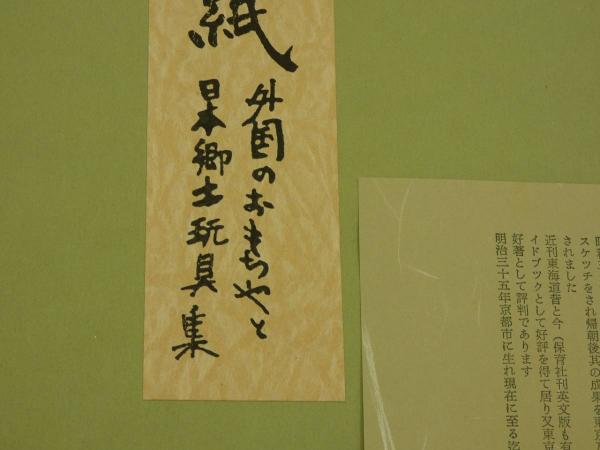 紙
外国のおもちやと
日本郷土玩具集
スケツチをされ帰朝後其の成果を東京
されました
近刊東海道昔と今(保育社刊英文版も有
イドブツクとして好評を得て居り又東京
好著として評判であります
明治三十五年京都市に生れ現在に至る迄